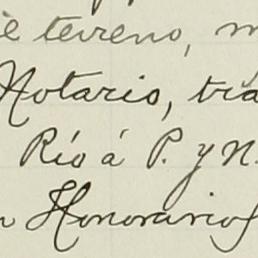 terreno,
Notario,
Río á P. y N.
Honorarios